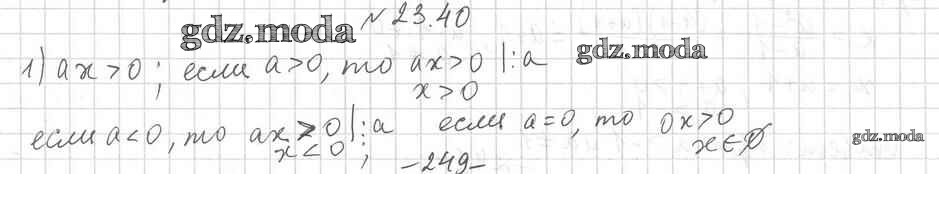 № 23.40
gdz.moda
1) ax > 0 ; если a > 0, то ax > 0 |:a gdz.moda
x > 0
если a < 0, то ax > 0 |:a если a = 0, то 0x > 0
x < 0 ; x ∈ ∅ gdz.moda
-249-